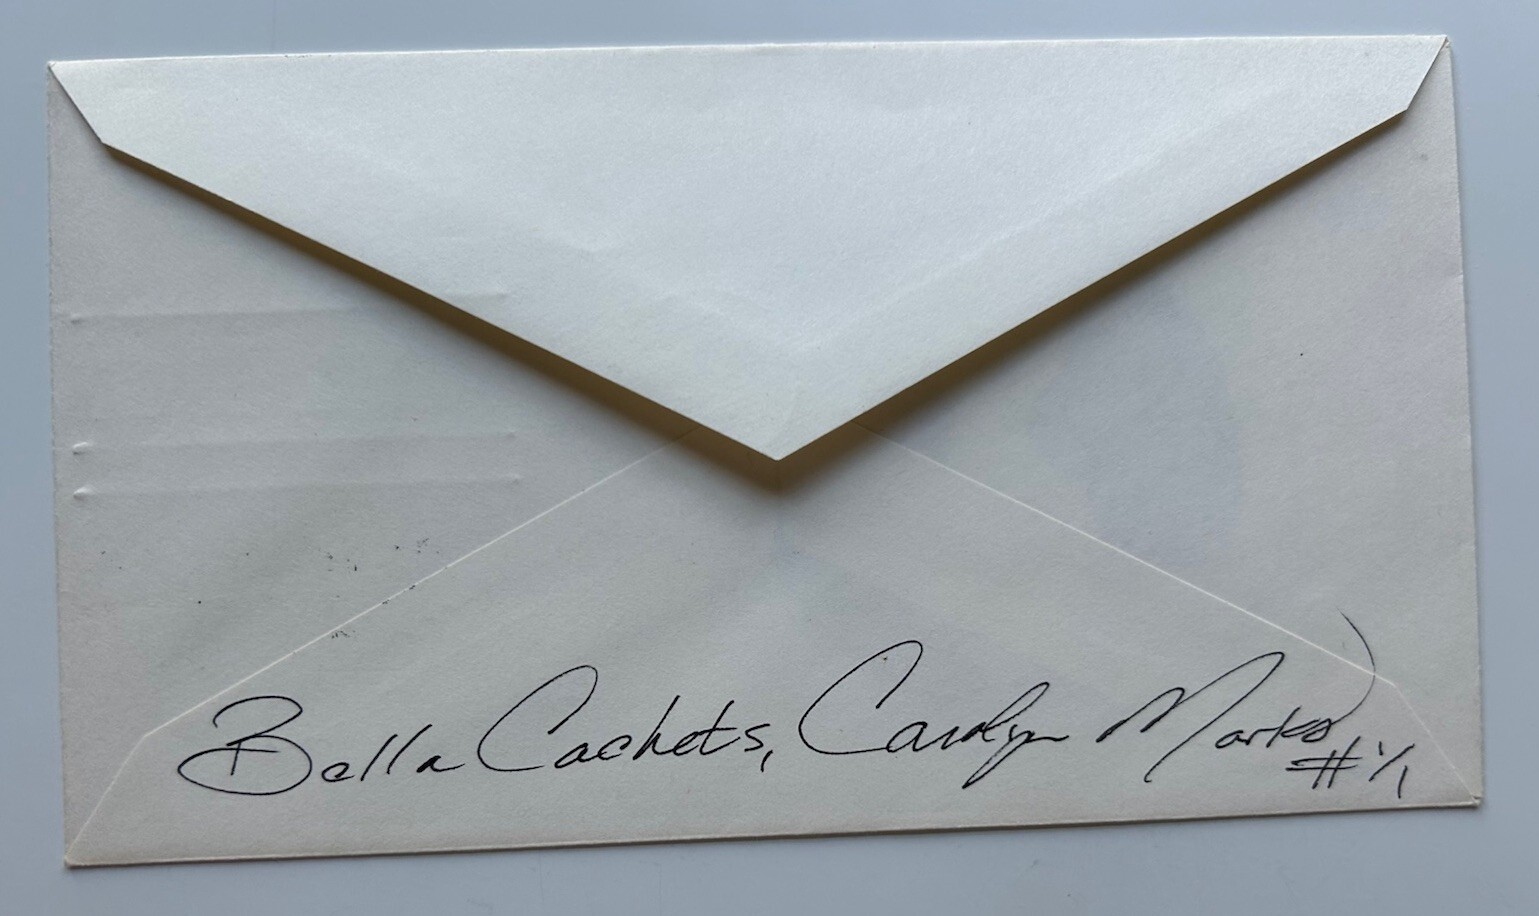 Bella Cachets, Carolyn Marks
# 1/1